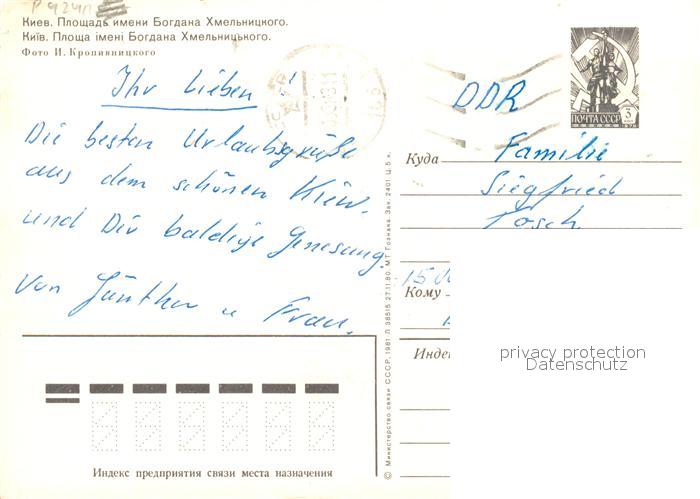 Киев. Площадь имени Богдана Хмельницкого.
Київ. Площа імені Богдана Хмельницького.
Фото И. Кропивницкого
Ihr Lieben!
Die besten Urlaubsgrüße
aus dem schönen Kiew.
und Dir baldige Genesung
von Günther u Frau.
ПОЧТА СССР 3
1976
DDR
Куда Familie
Siegfried
Кому
privacy protection
Datenschutz
Индекс предприятия связи места назначения
© Министерство связи СССР, 1981 Л 38515 27.11.80. МТ Гознака. Зак. 2401 Ц. 5 к.